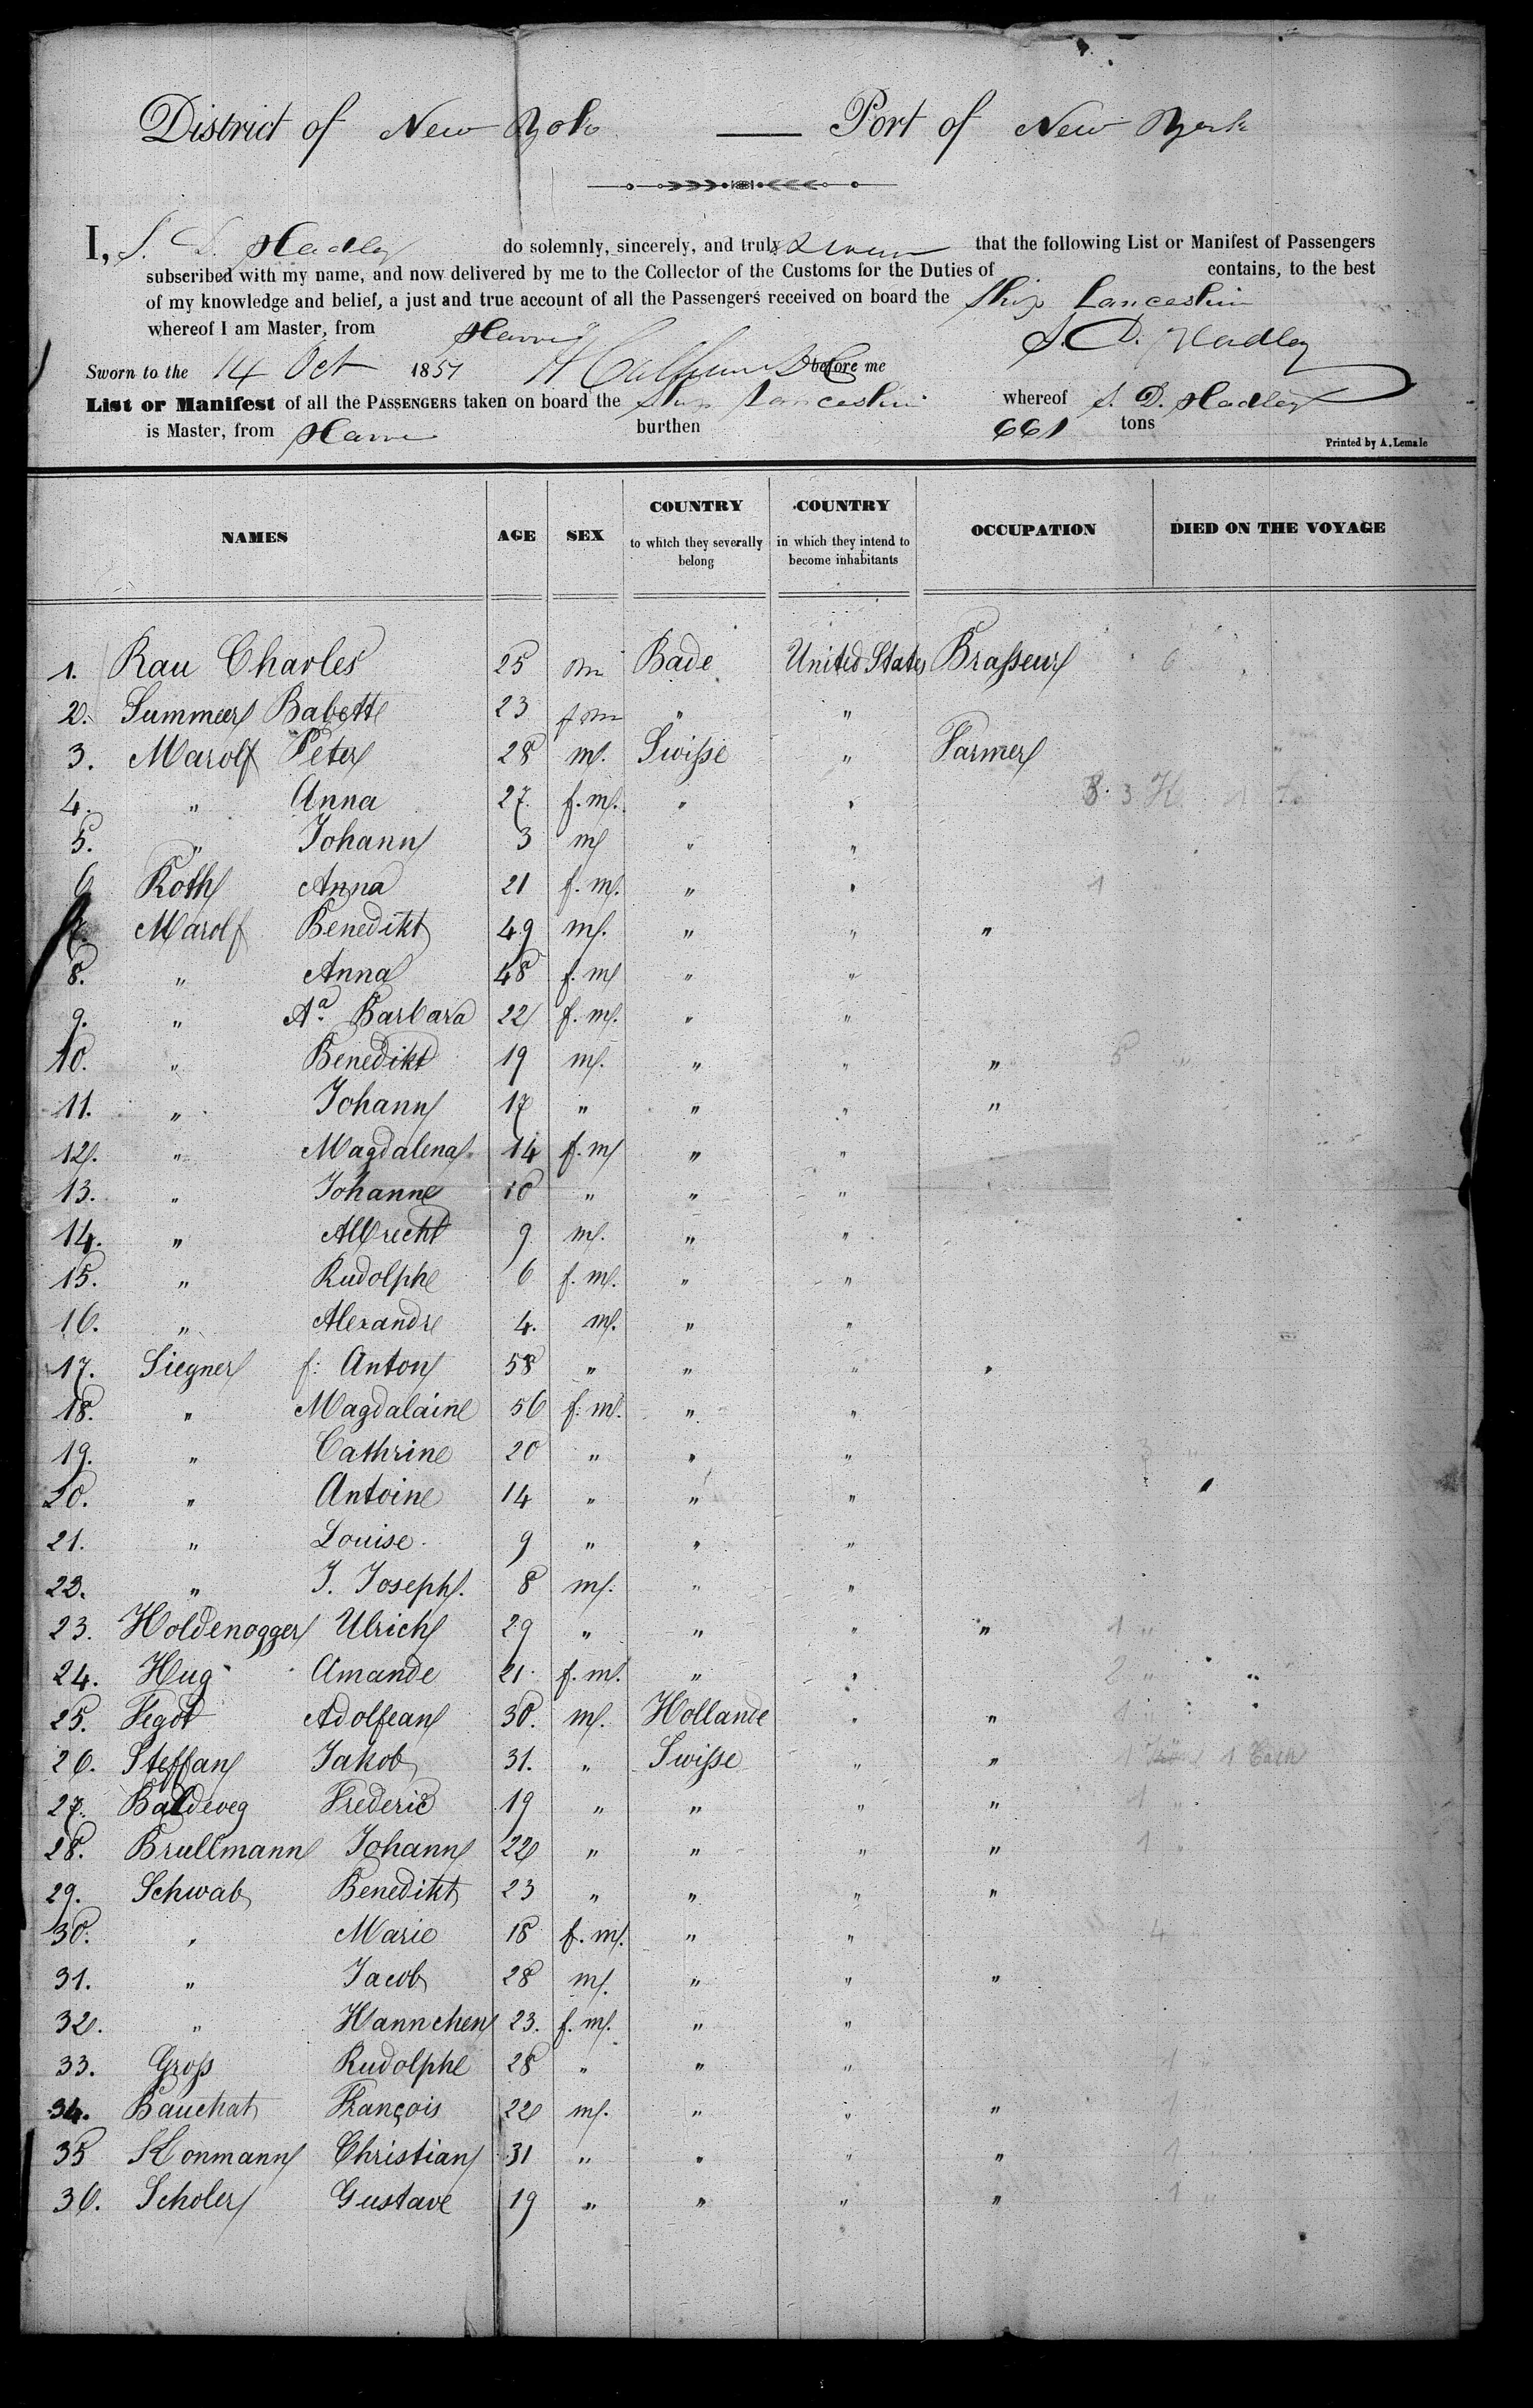 District of New York — Port of New York
I, S. D. Hadley do solemnly, sincerely, and truly swear that the following List or Manifest of Passengers
subscribed with my name, and now delivered by me to the Collector of the Customs for the Duties of contains, to the best
of my knowledge and belief, a just and true account of all the Passengers received on board the Ship Lancashire
whereof I am Master, from Havre S. D. Hadley
Sworn to the 14 Oct 1851 before me
List or Manifest of all the PASSENGERS taken on board the Ship Lancashire whereof S. D. Hadley
is Master, from Havre burthen 661 tons
Printed by A. Lemale
NAMES AGE SEX COUNTRY to which they severally belong COUNTRY in which they intend to become inhabitants OCCUPATION DIED ON THE VOYAGE
1. Rau Charles 25 m Bade United States Brasseur
2. Summeer Babette 23 fm " "
3. Marolf Peter 28 m. Swisse " Farmer
4. " Anna 27. f. m. " "
5. " Johann 3 m " "
6 Roth Anna 21 f. m. " "
7. Marolf Benedikt 49 m. " " "
8. " Anna 48 f. m " "
9. " Aa. Barbara 22 f. m. " "
10. " Benedikt 19 m. " " "
11. " Johann 17 " " " "
12. " Magdalena 14 f. m " "
13. " Johanne 10 " " "
14. " Albrecht 9 m. " "
15. " Rudolphe 6 f. m. " "
16. " Alexandre 4. m. " "
17. Siegner f: Anton 58 " " " "
18. " Magdalaine 56 f. m. " "
19. " Cathrine 20 " " "
20. " Antoine 14 " " "
21. " Louise. 9 " " "
22. " J. Joseph. 8 m. " "
23. Holdenogger Ulrich 29 " " " "
24. Hug Amande 21. f. m. " "
25. Fegot Adolfean 30. m. Hollande " "
26. Steffan Jakob 31. " Swisse " "
27. Baldeweg Frederic 19 " " " "
28. Brullmann Johann 22 " " " "
29. Schwab Benedikt 23 " " " "
30. " Marie 18 f. m. " "
31. " Jacob 28 m. " " "
32. " Hannchen 23. f. m. " "
33. Gross Rudolphe 28 " " "
34. Bauchat François 22 m. " " "
35 Konmann Christian 31 " " " "
36. Scholer Gustave 19 " " " "